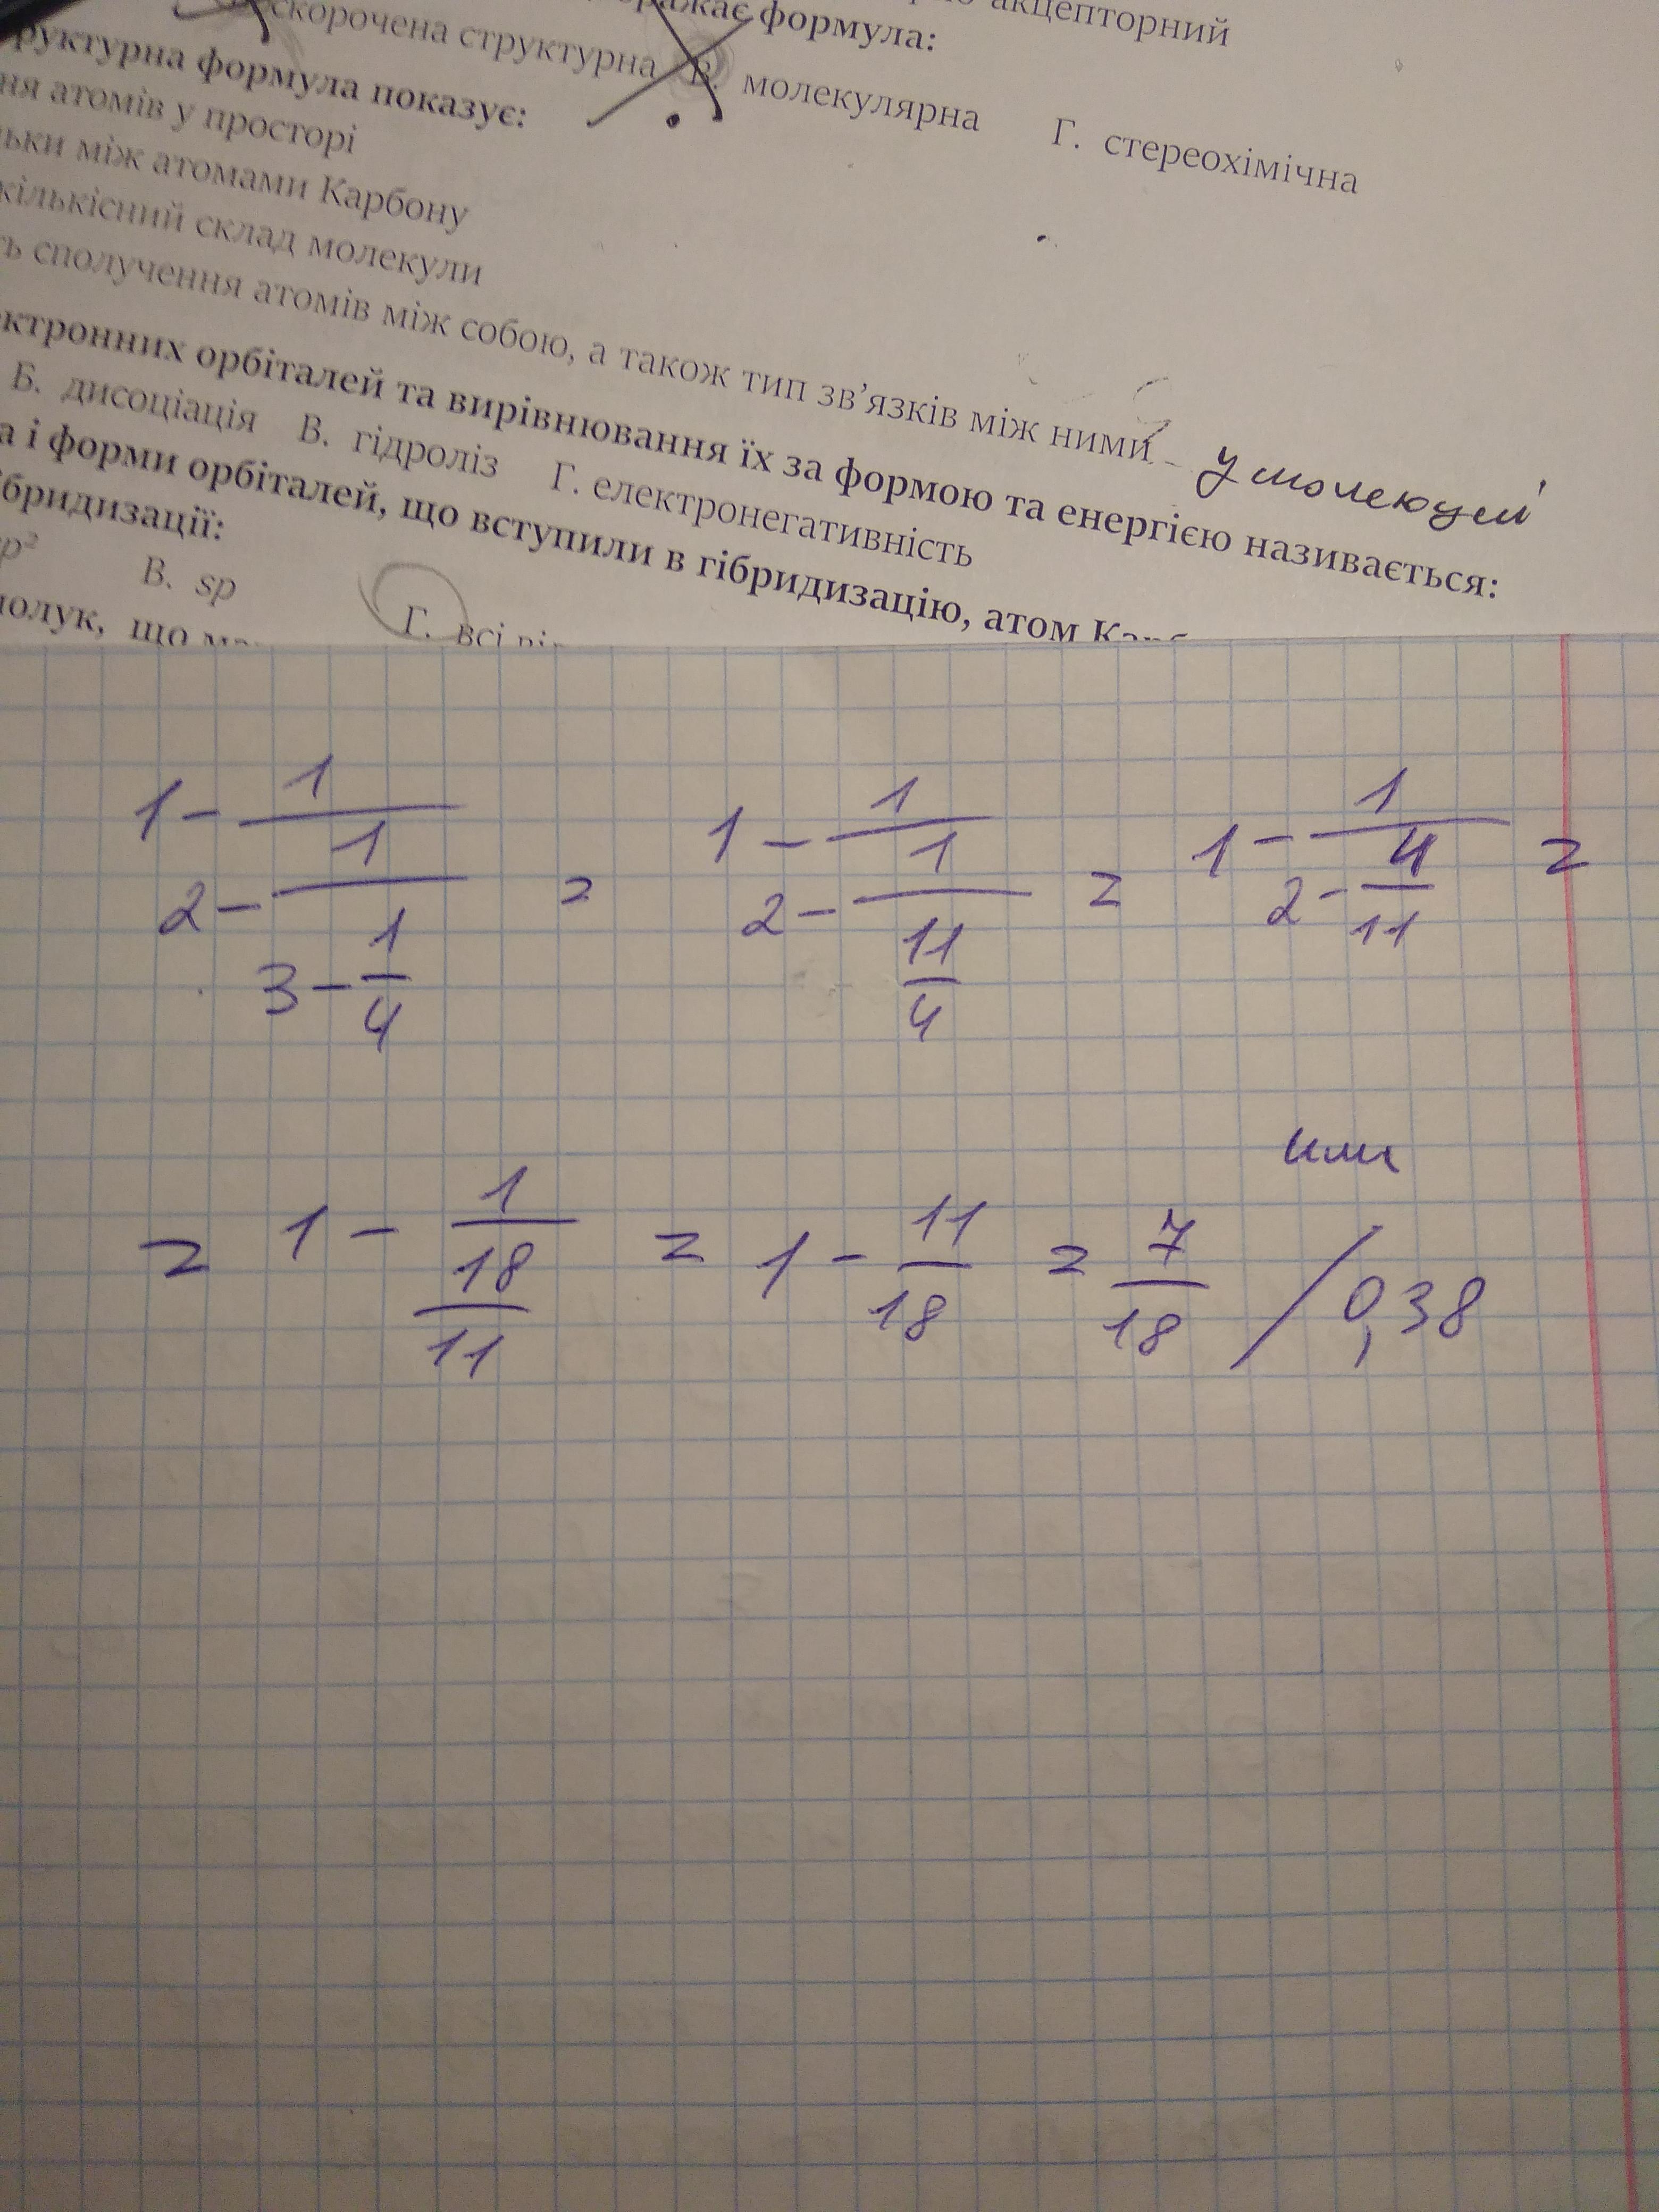 акцепторний
формула:
скорочена структурна В. молекулярна Г. стереохімічна
формула показує:
атомів у просторі
між атомами Карбону
кількісний склад молекули
сполучення атомів між собою, а також тип зв’язків між ними у молекулі
орбіталей та вирівнювання їх за формою та енергією називається:
Б. дисоціація В. гідроліз Г. електронегативність
а і форми орбіталей, що вступили в гібридизацію, атом
гібридизації:
sp² В. sp Г. всі
що
1 - 1/(2 - 1/(3 - 1/4)) = 1 - 1/(2 - 1/(11/4)) = 1 - 1/(2 - 4/11) =
или
= 1 - 1/(18/11) = 1 - 11/18 = 7/18 / 0,38